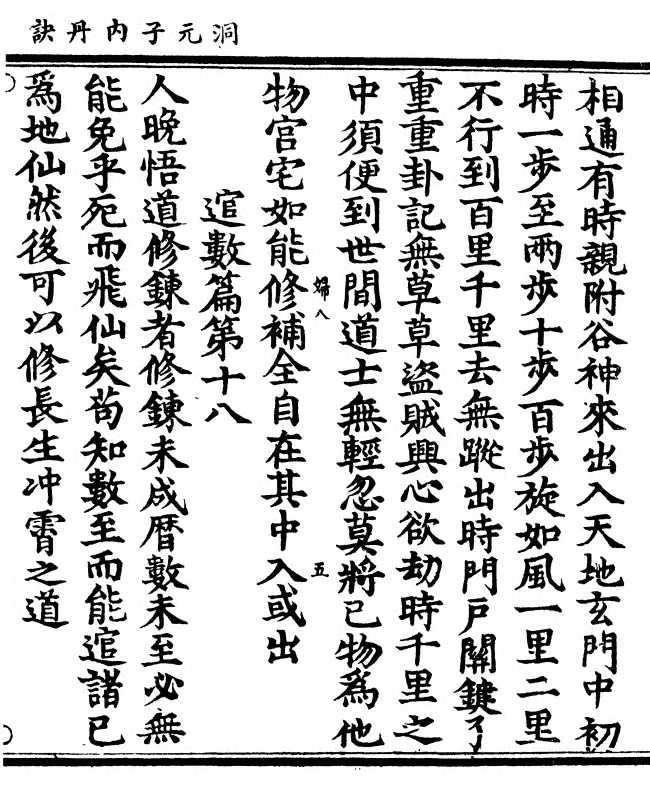 洞元子内丹訣
相通有時親附谷神來出入天地玄門中初
時一步至兩步十步百步旋如風一里二里
不行到百里千里去無蹤出時門戶關鍵了
重重卦記無草草盜賊興心欲劫時千里之
中須便到世間道士無輕忽莫將已物爲他
物官宅如能修補全自在其中入或出
婦八
五
逭數篇第十八
人晚悟道修鍊者修鍊未成曆數未至必無
能免乎死而飛仙矣茍知數至而能逭諸已
爲地仙然後可以修長生冲霄之道